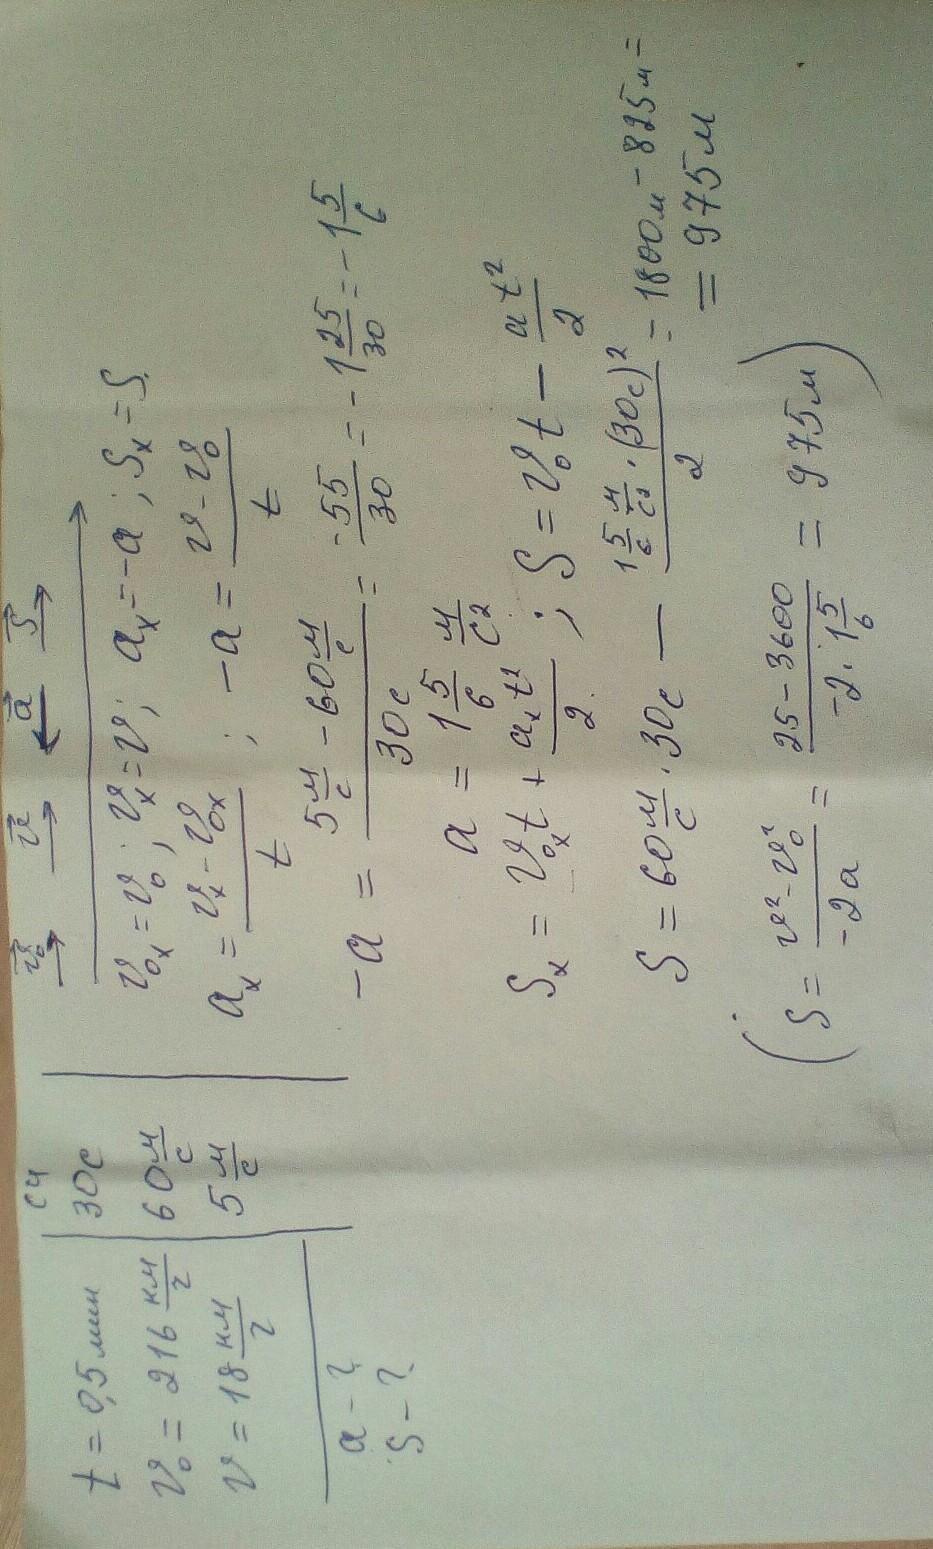 t = 0,5 мин
v₀ = 216 км/г
v = 18 км/г
a - ?
S - ?
СИ
30с
60 м/с
5 м/с
v₀ v a S
v₀ₓ = v₀; vₓ = v; aₓ = -a; Sₓ = S.
aₓ = (vₓ - v₀ₓ)/t; -a = (v - v₀)/t
-a = (5 м/с - 60 м/с)/30с = -55/30 = -1 25/30 = -1 5/6
a = 1 5/6 м/с²
Sₓ = v₀ₓt + aₓt²/2; S = v₀t - at²/2
S = 60 м/с · 30с - (1 5/6 м/с² · (30с)²)/2 = 1800м - 825м =
= 975м
(S = (v² - v₀²)/-2a = (25 - 3600)/(-2 · 1 5/6) = 975м)